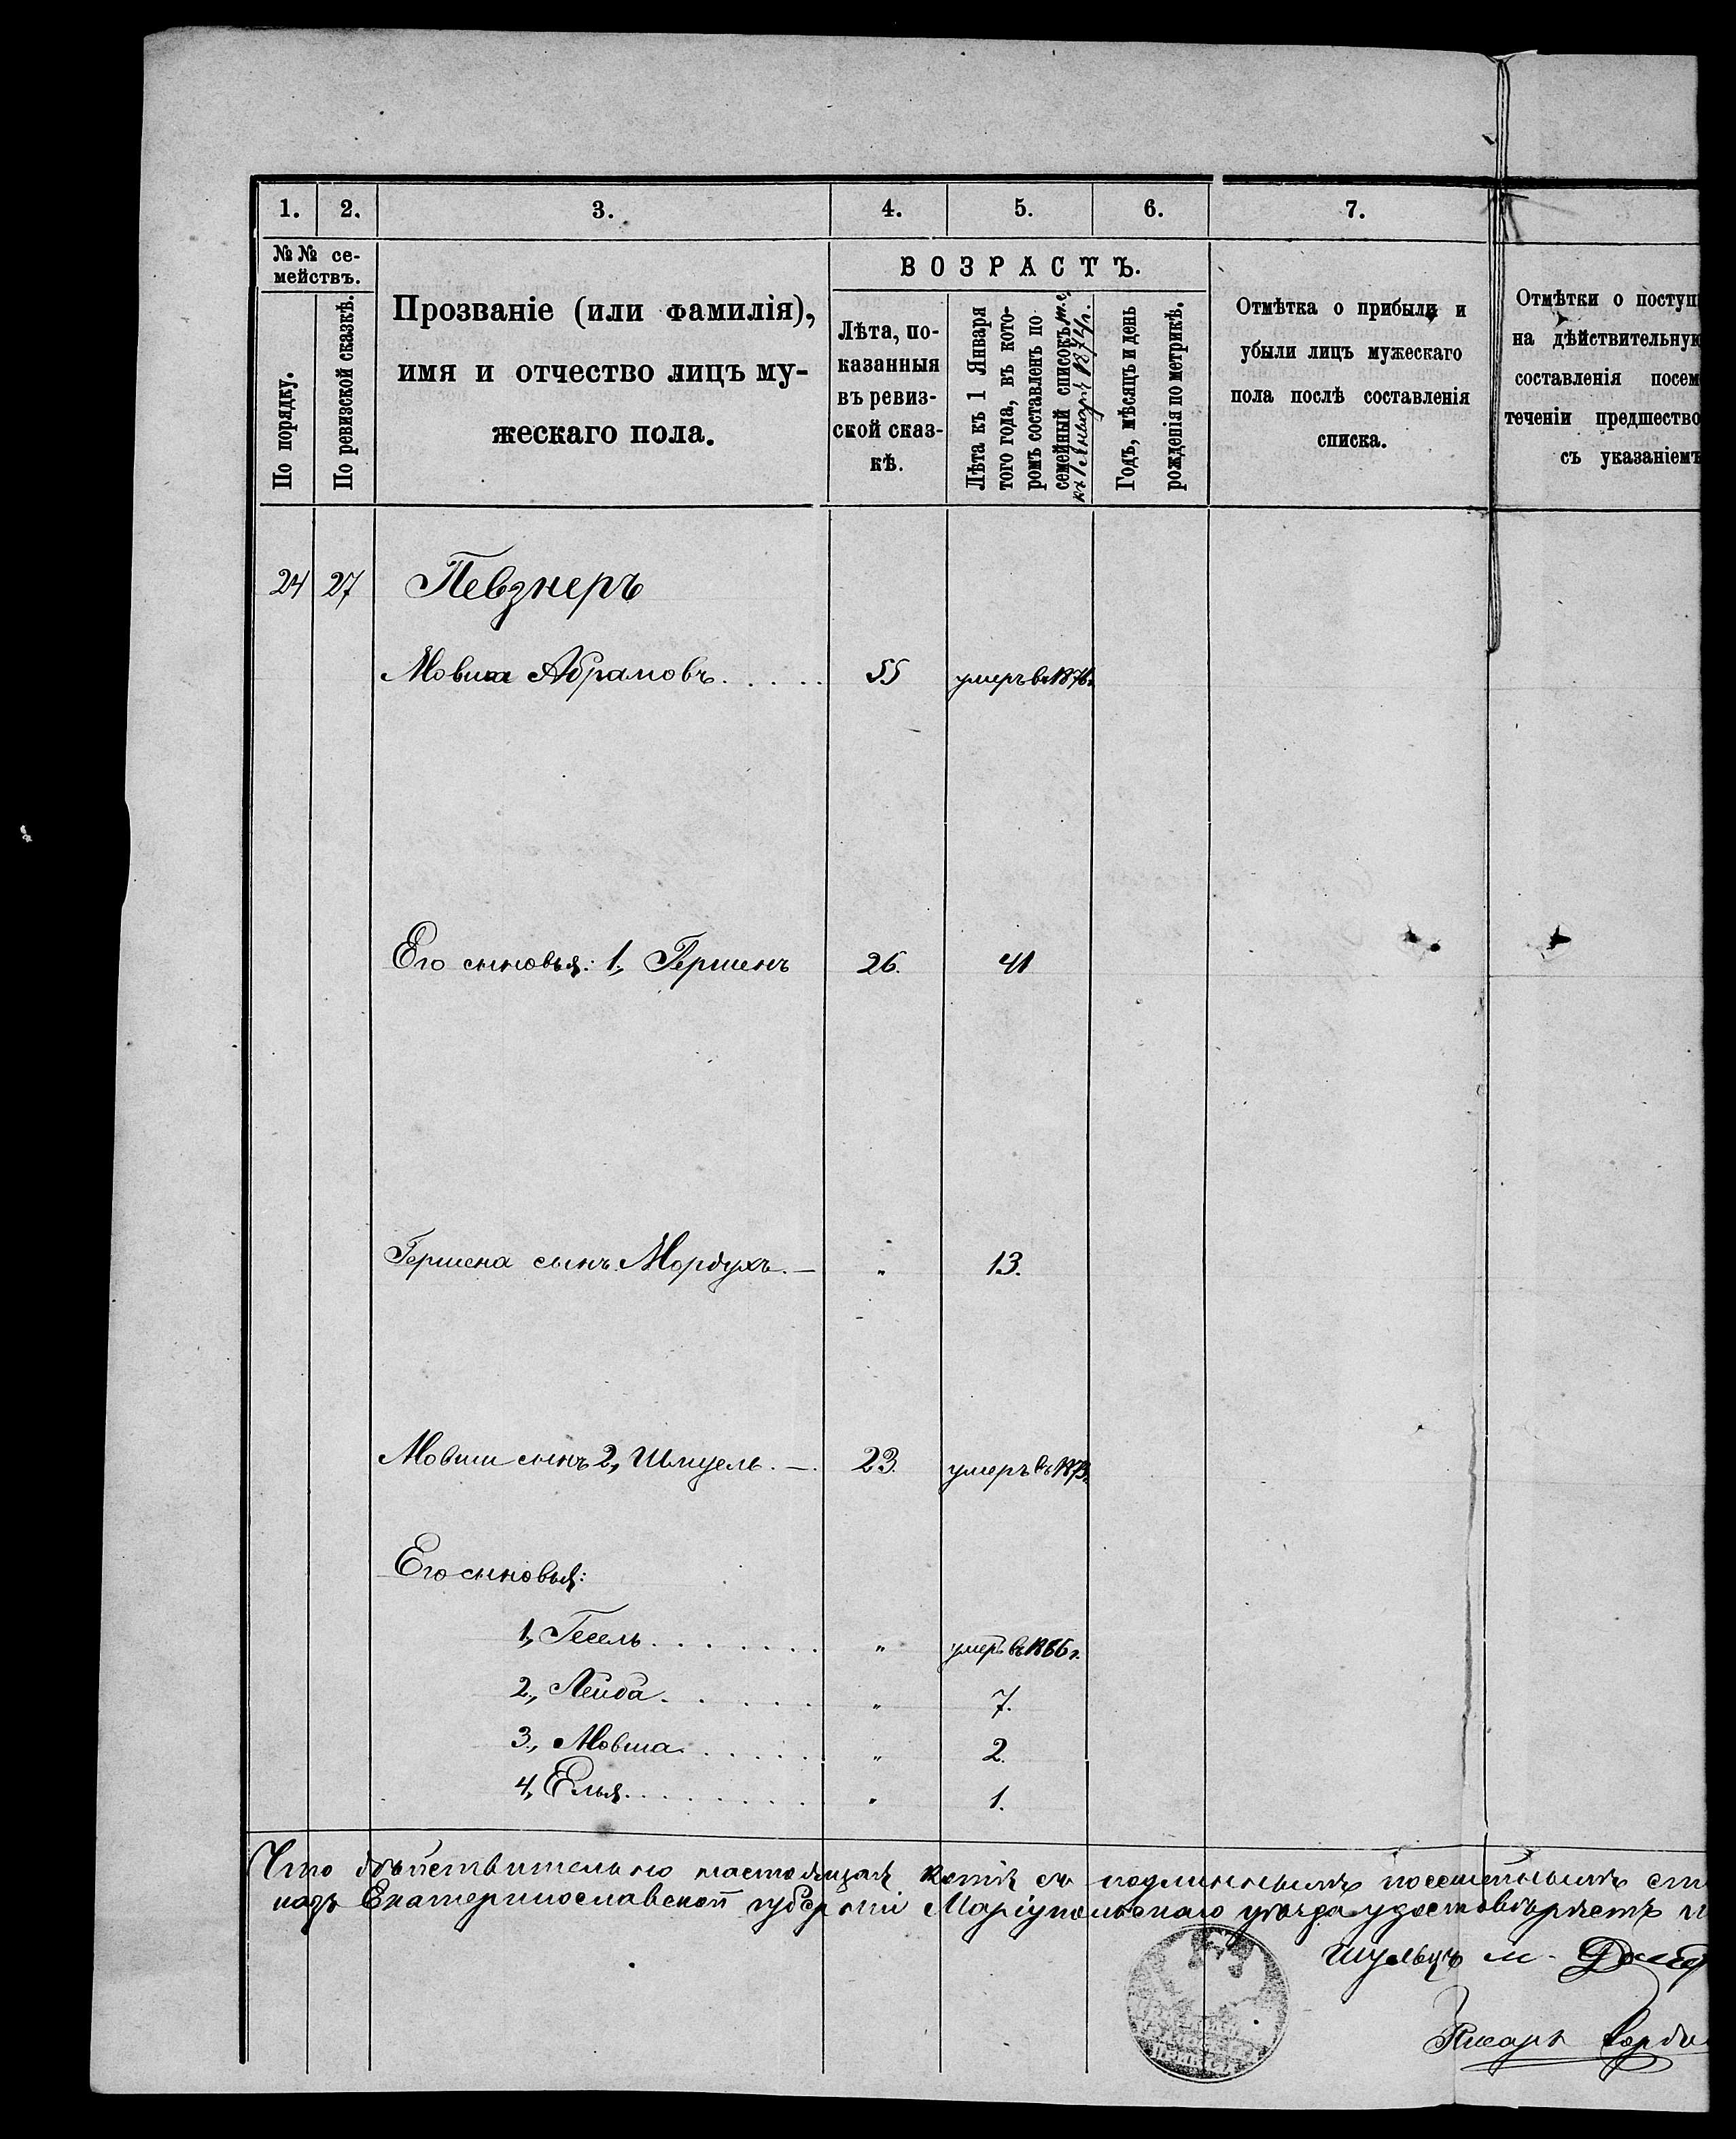 1. 2. 3. 4. 5. 6. 7.
№№ се-
мействъ.
По порядку.
По ревизской сказкѣ.
Прозваніе (или фамилія),
имя и отчество лицъ му-
жескаго пола.
ВОЗРАСТЪ.
Лѣта, по-
казанныя
въ ревиз-
ской сказ-
кѣ.
Лѣта къ 1 Января
того года, въ кото-
ромъ составленъ по
семейный списокъ т.е.
къ 1 Января 1874 г.
Годъ, мѣсяцъ и день
рожденія по метрикѣ.
Отмѣтка о прибыли и
убыли лицъ мужескаго
пола послѣ составленія
списка.
Отмѣтки о поступ
на дѣйствительную
составленія посем
теченіи предшество
съ указаніемъ
24 27 Певзнеръ
Мовша Абрамовъ..... 55 умеръ въ 187
Его сыновья: 1, Гершенъ 26. 41
Гершена сынъ Мордухъ.— " 13.
Мовши сынъ 2, Шмуель.—. 23. умеръ въ 1873
Его сыновья:
1, Гесель....... " умеръ въ 1866 г.
2, Лейба...... " 7.
3, Мовша...... " 2.
4, Елья........ " 1.
Что дѣйствительно настоящая копія съ подлиннымъ посемейнымъ сп
Екатеринославской губерніи Маріупольскаго уѣзда удостовѣряетъ
Шульцъ
Писарь